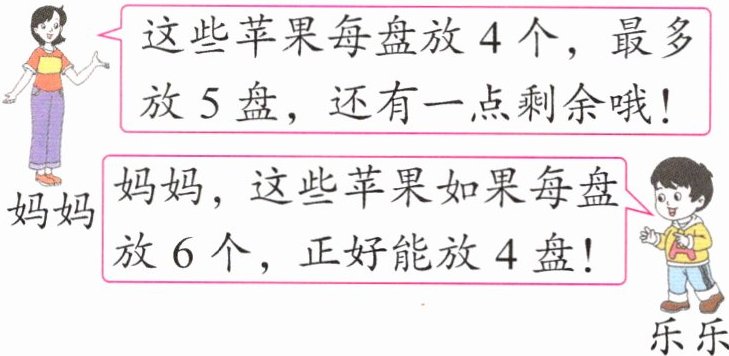 这些苹果每盘放4个，最多
放5盘，还有一点剩余哦！
妈妈
妈妈，这些苹果如果每盘
放6个，正好能放4盘！
乐乐